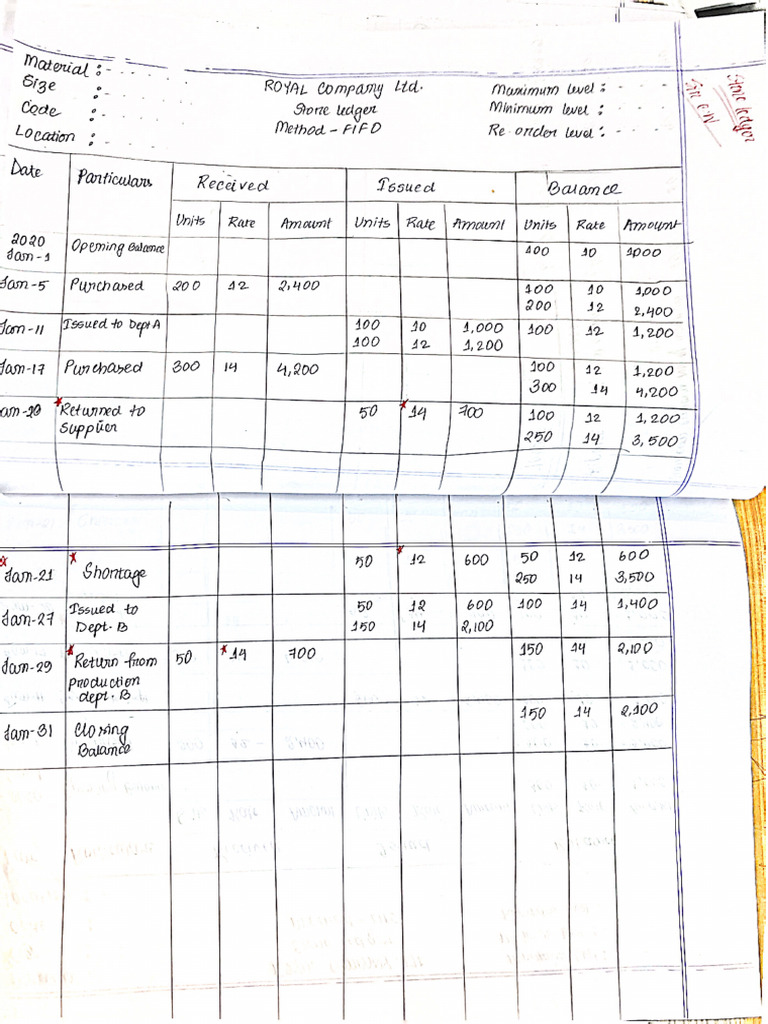 Material :- - - - -
Size :- - - - - -
Code :- - - - -
Location :- - - - -
ROYAL Company Ltd.
Store ledger
Method - FIFO
Maximum level : - - - -
Minimum level : - - - -
Re order level : - - - -
Store ledger
Date Particulars Received Issued Balance
Units Rate Amount Units Rate Amount Units Rate Amount
2020
Jan-1 Opening Balance 100 10 1000
Jan-5 Purchased 200 12 2,400 100 10 1,000
200 12 2,400
Jan-11 Issued to Dept A 100 10 1,000 100 12 1,200
100 12 1,200
Jan-17 Purchased 300 14 4,200 100 12 1,200
300 14 4,200
Jan-20 *Returned to 50 *14 700 100 12 1,200
Supplier 250 14 3,500
*Jan-21 *Shortage 50 *12 600 50 12 600
250 14 3,500
Jan-27 Issued to 50 12 600 100 14 1,400
Dept. B 150 14 2,100
Jan-29 *Return from 50 *14 700 150 14 2,100
production
dept. B
Jan-31 Closing 150 14 2,100
Balance